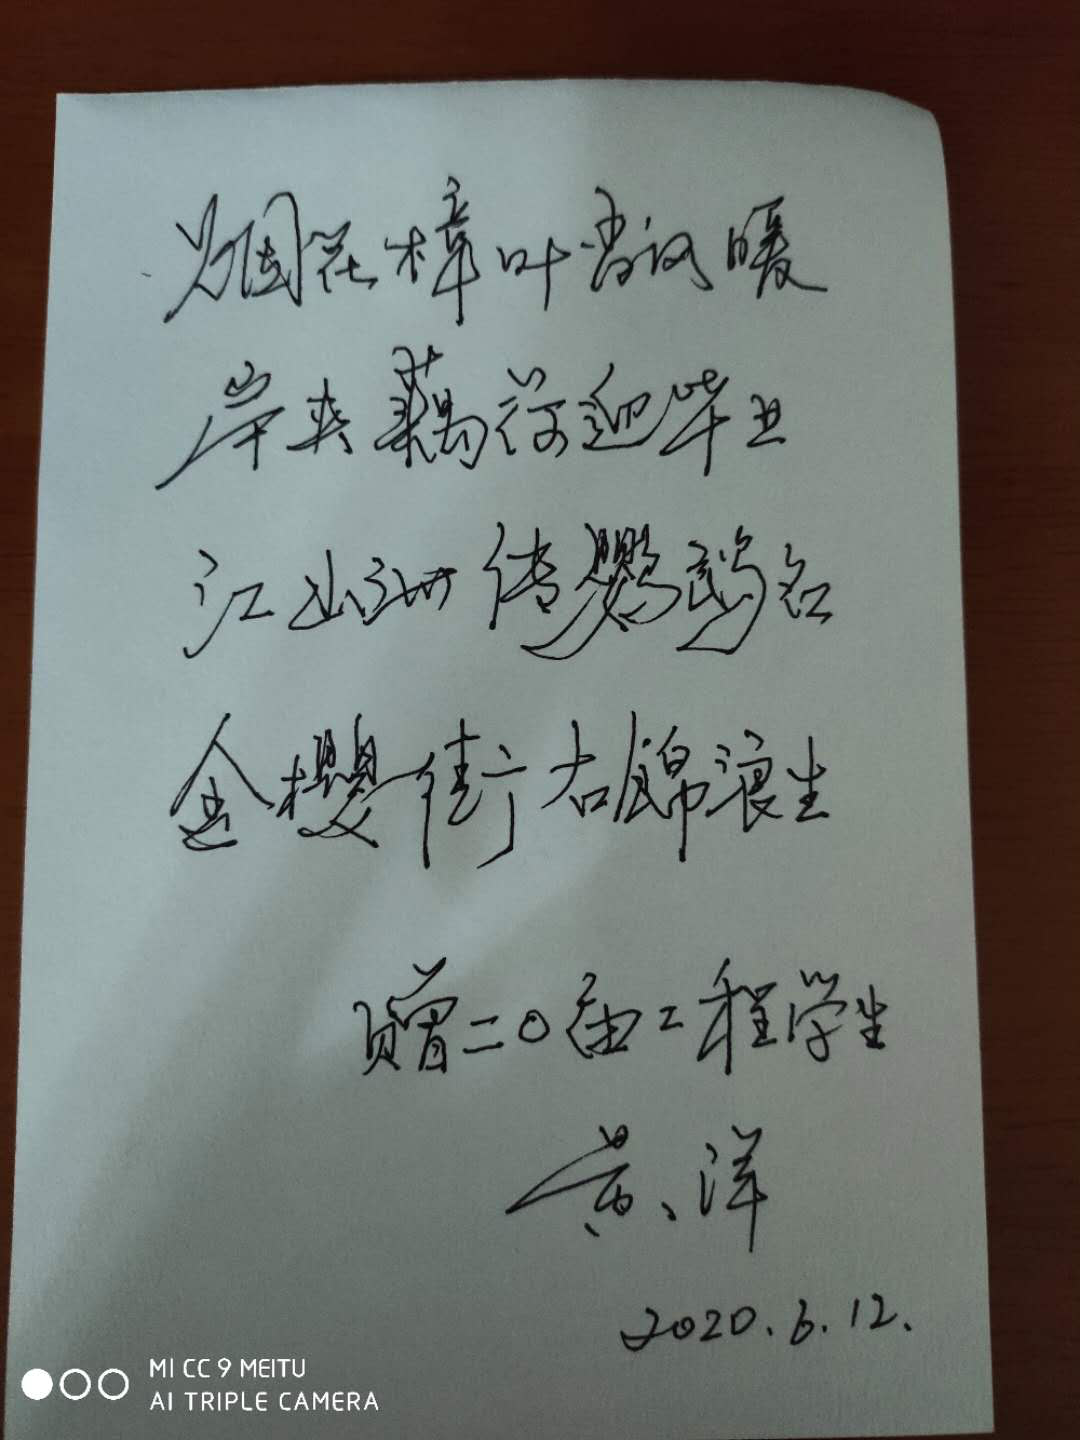 烟花樟叶当风暖
岸夹藕荷迎毕业
江心洲传鹦鹉名
金樱街右锦浪生
赠二〇届工程学生
黄洋
2020.6.12.
MI CC 9 MEITU
AI TRIPLE CAMERA